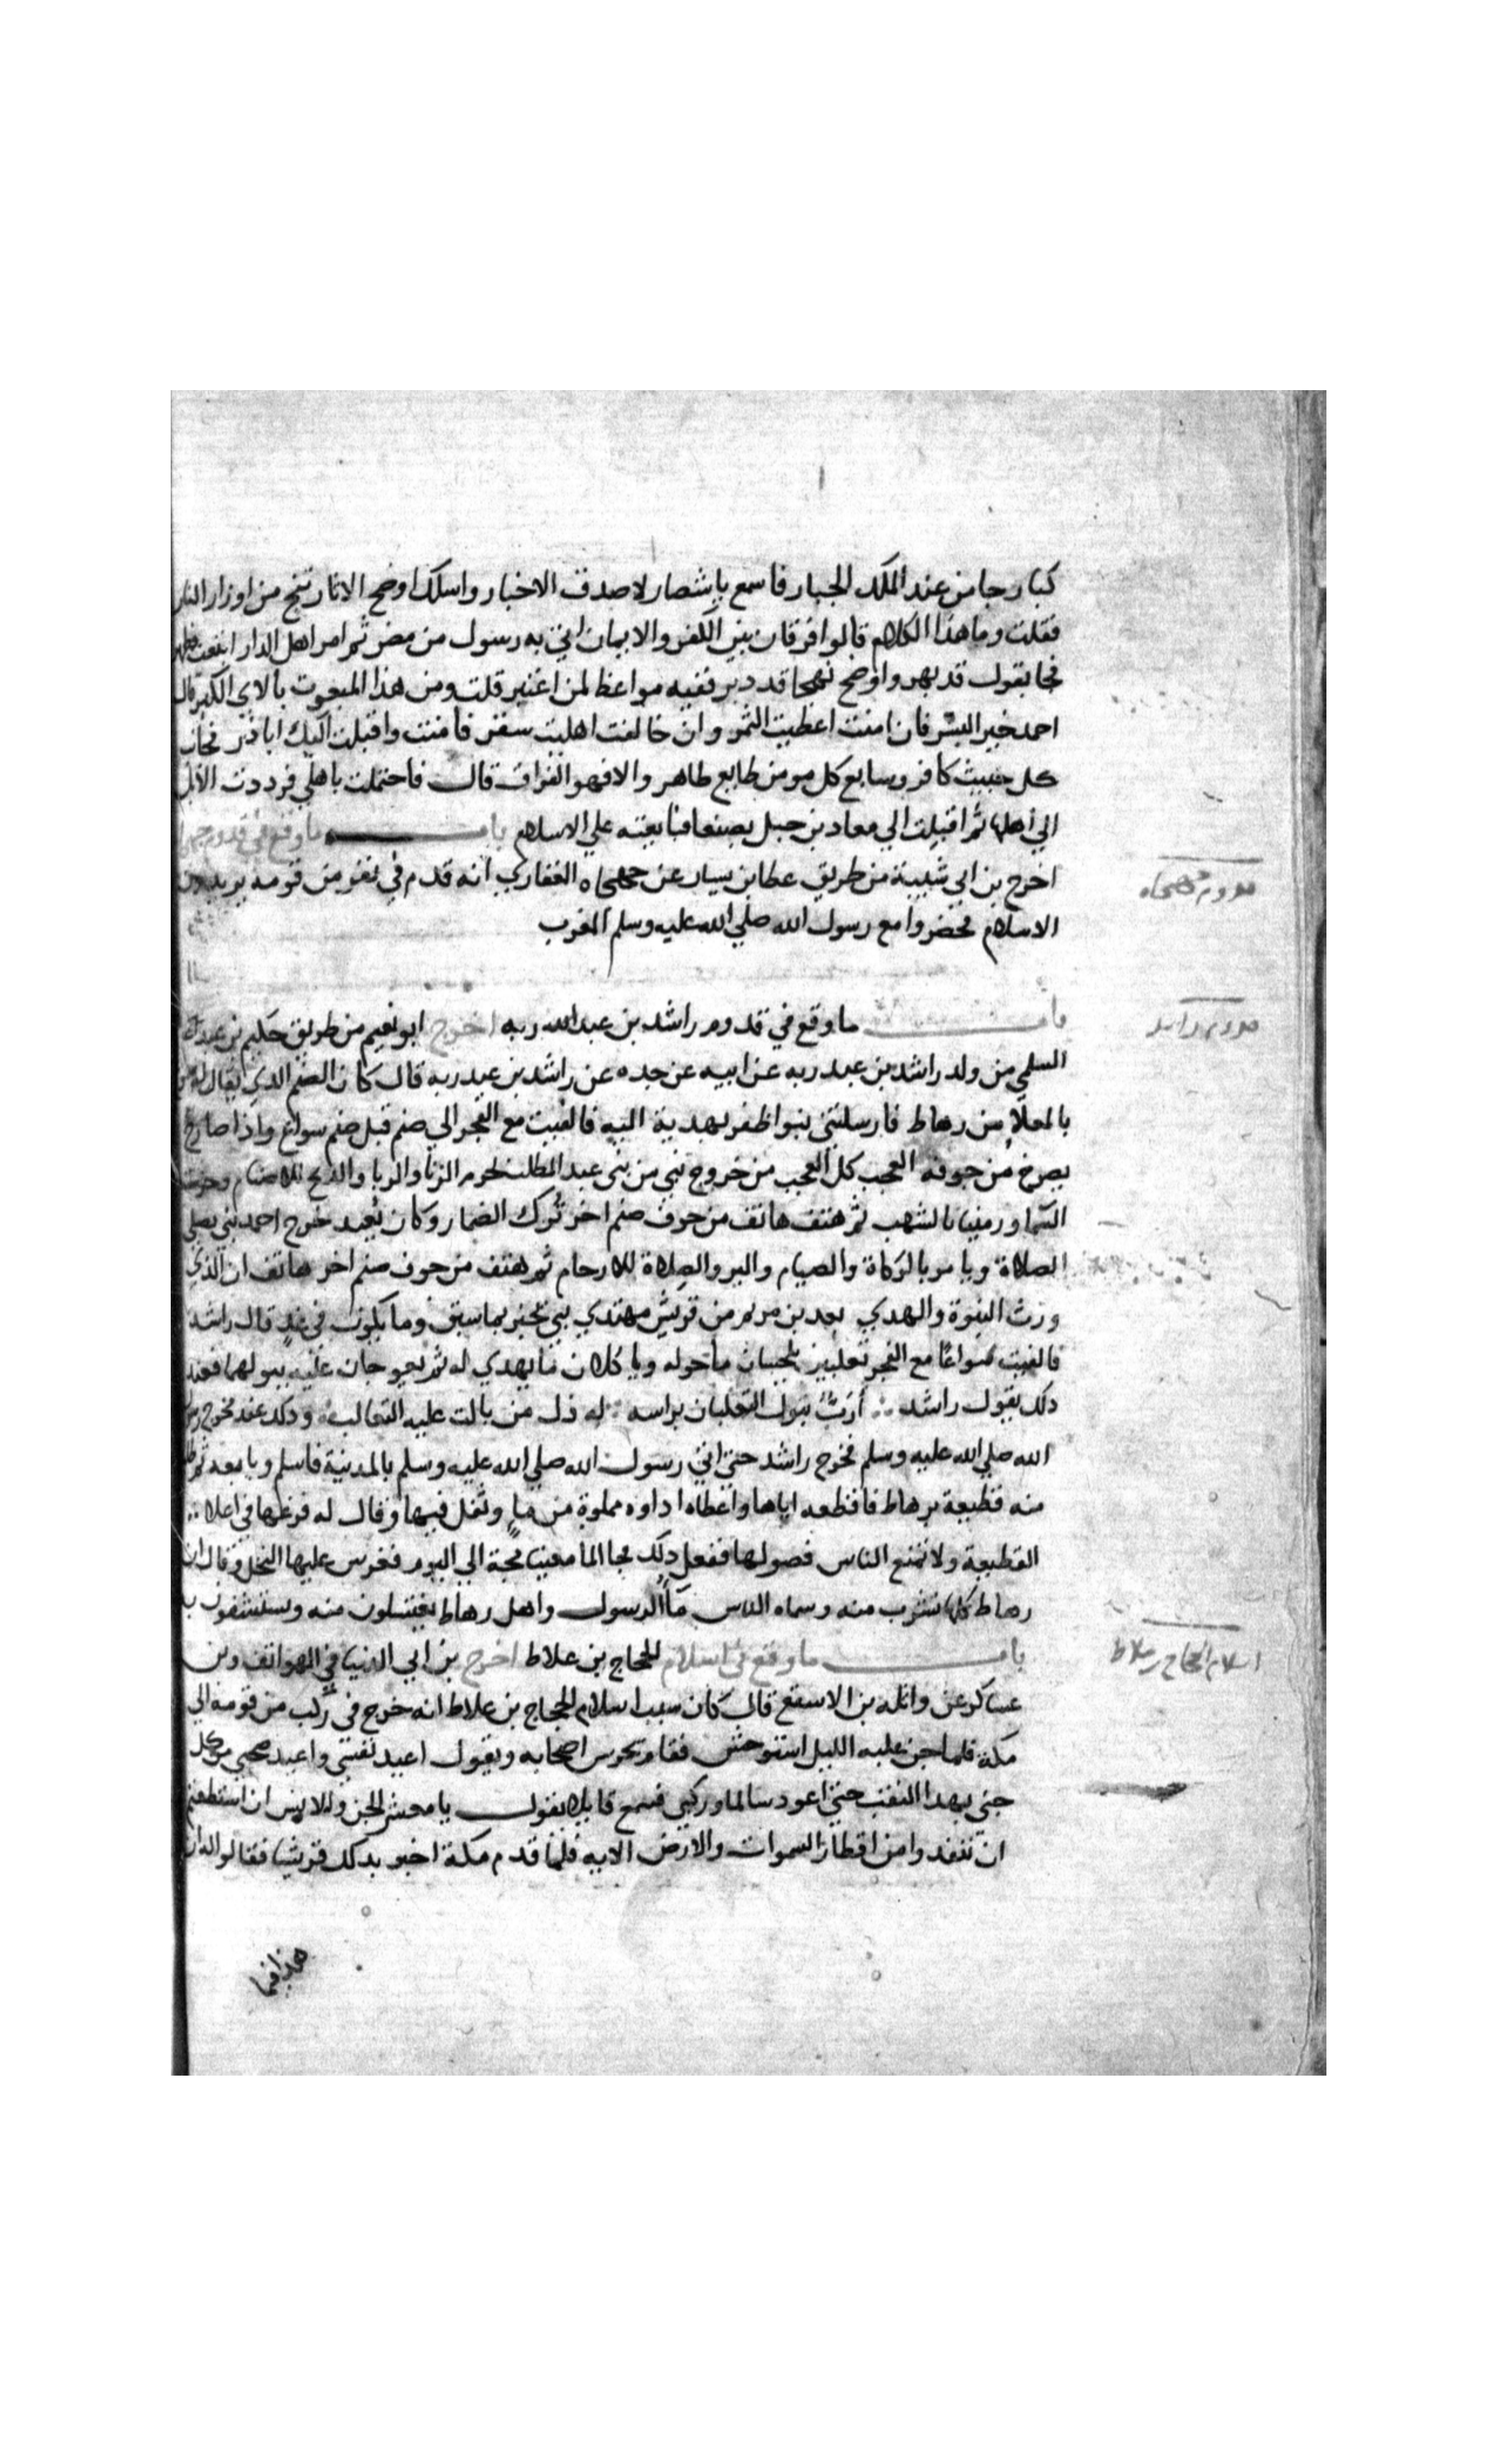 كبار جا من عند الملك الجبار فاسمع ياشصار لاصدق الاخبار واسلك اوضح الاثار تنج من اوزار النار
فقلت وما هذا الكلام قالوا فرقان بين الكفر والايمان اتي به رسول من مضر ثم امر اهل الدار ابتعث فظهر
فجا بقول قد بهر واوضح نهجا قد دبر ففيه مواعظ لمن اعتبر قلت ومن هذا المبعوث بالاى الكبر قال
احمد خير البشر فان امنت اعطيت الثمر وان خالفت اهليت سقر فامنت واقبلت اليك ابادر فجانب
كل خبيث كافر وسابع كل مومن طابع طاهر والا فهو الفراق قال فاحتملت باهلي فرددت الابل
الي اهلها ثم اقبلت الي معاد بن جبل بصنعا فبايعته علي الاسلام باب ما وقع في قدوم
اخرج بن ابي شيبة من طريق عطا بن يسار عن جهجاه الغفاري انه قدم في نفر من قومه يريدون
الاسلام فحضروا مع رسول الله صلي الله عليه وسلم المغرب
قدوم جهجاه
باب ما وقع في قدوم راشد بن عبد الله ربه اخرج ابو نعيم من طريق حكيم بن عطا
قدوم راشد
السلمي من ولد راشد بن عبد ربه عن ابيه عن جده عن راشد بن عبد ربه قال كان الصنم الدي يقال له
بالمعلاة من رهاط فارسلتني بنوا ظفر بهدية اليه فالفيت مع الفجر الي صنم قبل صنم سواع واذا صارخ
يصرخ من جوفه العجب كل العجب من خروج نبي من بني عبد المطلب يحرم الزنا والربا والذبح للاصنام وحرست
السما ورمينا بالشهب ثم هتف هاتف من جوف صنم اخر ترك الضمار وكان يعبد خرج احمد نبي يصلي
الصلاة ويامر بالزكاة والصيام والبر والصلاة للارحام ثم هتف من جوف صنم اخر هاتف ان الذي
ورث النبوة والهدي بعد بن مريم من قريش مهتدي نبي يخبر بما سبق وما يكون في غد قال راشد
فالفيت سواعًا مع الفجر ثعلبين يلحسان ما حوله وياكلان ما يهدي له ثم يعوجان عليه ببولهما فعند
دلك يقول راشد أرَبٌّ يبول الثعلبان براسه له ذل من بالت عليه الثعالب ودلك عند مخرج رسول
الله صلي الله عليه وسلم فخرج راشد حتي اتي رسول الله صلي الله عليه وسلم بالمدينة فاسلم وبايعه ثم طلب
منه قطيعة برهاط فاقطعه اياها واعطاه اداوه مملوة من ما وتفل فيها وقال له فرغها في اعلا
القطيعة ولا تمنع الناس فصولها ففعل دلك فجا الما معينا مجة الي اليوم فغرس عليها النخل وقال ان
رهاط كلها تشرب منه وسماه الناس مآ الرسول واهل رهاط يغتسلون منه ويستشفون به
باب ما وقع في اسلام الحجاج بن علاط اخرج بن ابي الدنيا في الهواتف وبن
اسلام الحجاج بن علاط
عساكر عن واثله بن الاسقع قال كان سبب اسلام الحجاج بن علاط انه خرج في ركب من قومه الي
مكة فلما جن عليه الليل استوحش فقام يحرس اصحابه ويقول اعيد نفسي واعيد صحبي من كل
جني بهدا النقب حتي اعود سالما وركبي فسمع قايلا يقول يا معشر الجن والانس ان استطعتم
ان تنفدوا من اقطار السموات والارض الايه فلما قدم مكة اخبر بدلك قريشا فقالوا له ان
هذا فيما